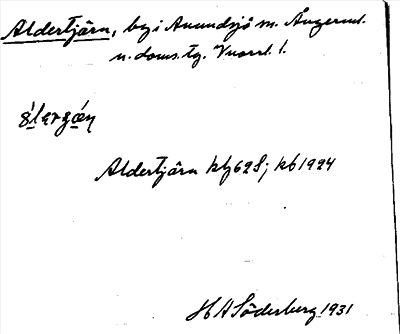 Aldertjärn, by i Anundsjö sn. Ångerml.
n. doms. tg. Vnorrl. l.
Aldertjärn kbf 628; kb 1924
H A Söderberg 1931